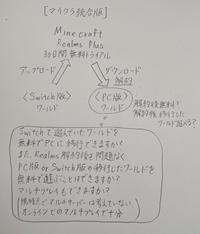 [マイクラ統合版]
Minecraft
Realms Plus
30日間 無料トライアル
アップロード
ダウンロード
解約
〈Switch版〉
ワールド
〈PC版〉
ワールド
解約後無料!
解約後、移行した
ワールド遊べる?
Switchで遊んでいたワールドを
無料でPCに移行できますか?
また、Realms解約後も問題なく
PC版orSwitch版の移行したワールドを
無料で遊ぶことはできますか?
マルチプレイもできますか?
(現時点でマルチサーバーは考えていない
オンラインでのマルチプレイで十分